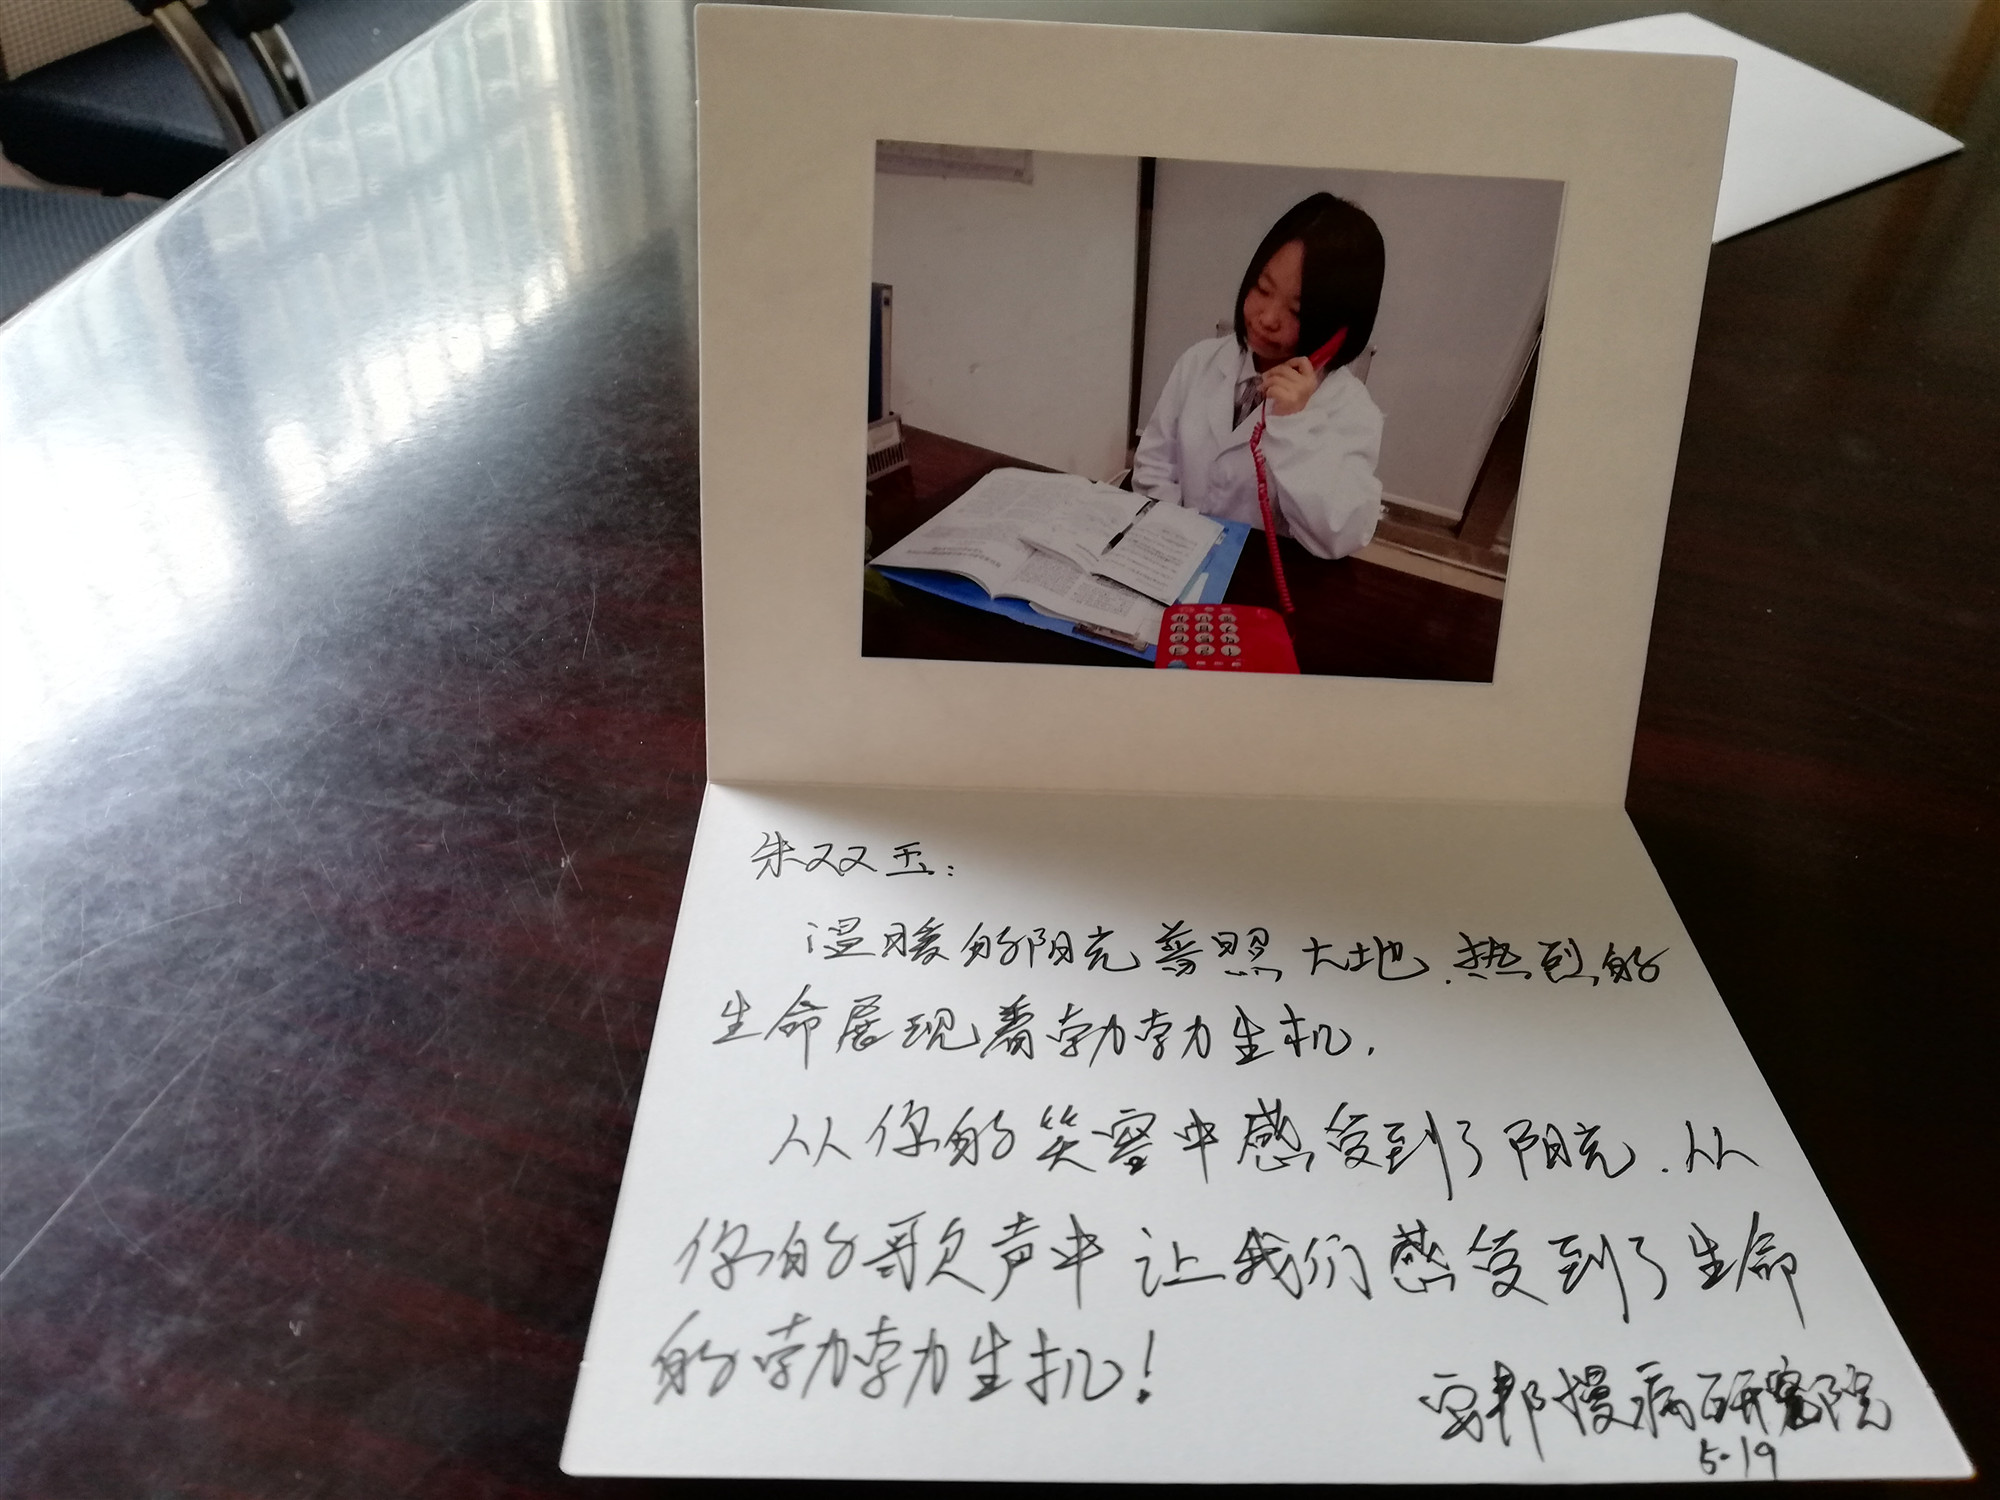 朱双玉：
温暖的阳光普照大地.热烈的
生命展现着勃勃生机.
从你的笑容中感受到了阳光.从
你的歌声中让我们感受到了生命
的勃勃生机！
邦慢病研究院
5-19